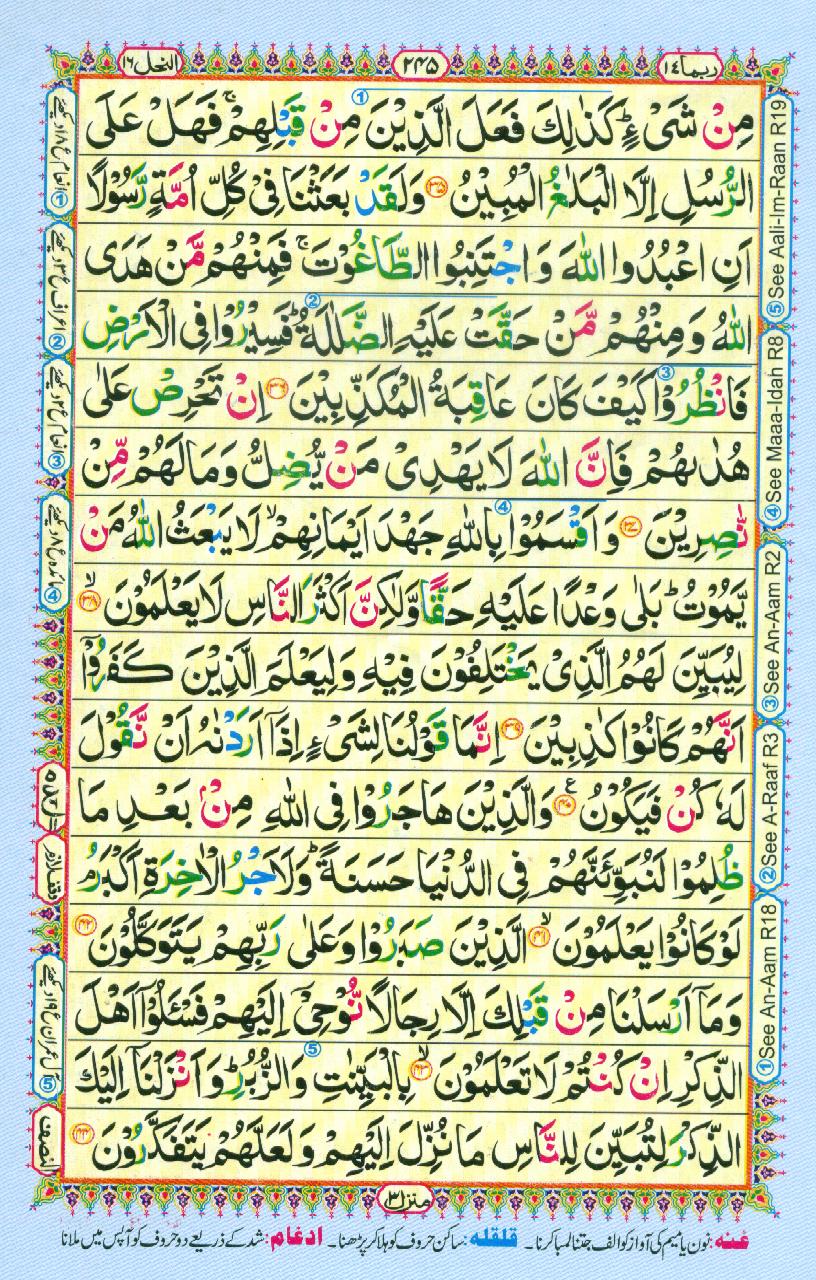 ربما ١٤
٢٤٥
النحل ١٦
مِنْ شَیْءٍ ؕ كَذٰلِكَ فَعَلَ الَّذِیْنَ مِنْ قَبْلِهِمْ ۚ فَهَلْ عَلَی
الرُّسُلِ اِلَّا الْبَلٰغُ الْمُبِیْنُ ﴿۳۵﴾ وَلَقَدْ بَعَثْنَا فِیْ كُلِّ اُمَّةٍ رَّسُوْلًا
اَنِ اعْبُدُوا اللّٰهَ وَاجْتَنِبُوا الطَّاغُوْتَ ۚ فَمِنْهُمْ مَّنْ هَدَی
اللّٰهُ وَمِنْهُمْ مَّنْ حَقَّتْ عَلَیْهِ الضَّلٰلَةُ ؕ فَسِیْرُوْا فِی الْاَرْضِ
فَانْظُرُوْا كَیْفَ كَانَ عَاقِبَةُ الْمُكَذِّبِیْنَ ﴿۳۶﴾ اِنْ تَحْرِصْ عَلٰی
هُدٰىهُمْ فَاِنَّ اللّٰهَ لَا یَهْدِیْ مَنْ یُّضِلُّ وَمَا لَهُمْ مِّنْ
نّٰصِرِیْنَ ﴿۳۷﴾ وَاَقْسَمُوْا بِاللّٰهِ جَهْدَ اَیْمَانِهِمْ ۙ لَا یَبْعَثُ اللّٰهُ مَنْ
یَّمُوْتُ ؕ بَلٰی وَعْدًا عَلَیْهِ حَقًّا وَّلٰكِنَّ اَكْثَرَ النَّاسِ لَا یَعْلَمُوْنَ ۙ﴿۳۸﴾
لِیُبَیِّنَ لَهُمُ الَّذِیْ یَخْتَلِفُوْنَ فِیْهِ وَلِیَعْلَمَ الَّذِیْنَ كَفَرُوْۤا
اَنَّهُمْ كَانُوْا كٰذِبِیْنَ ﴿۳۹﴾ اِنَّمَا قَوْلُنَا لِشَیْءٍ اِذَاۤ اَرَدْنٰهُ اَنْ نَّقُوْلَ
لَهٗ كُنْ فَیَكُوْنُ ﴿۴۰﴾ ع وَالَّذِیْنَ هَاجَرُوْا فِی اللّٰهِ مِنْۢ بَعْدِ مَا
ظُلِمُوْا لَنُبَوِّئَنَّهُمْ فِی الدُّنْیَا حَسَنَةً ؕ وَلَاَجْرُ الْاٰخِرَةِ اَكْبَرُ ۘ
لَوْ كَانُوْا یَعْلَمُوْنَ ۙ﴿۴۱﴾ الَّذِیْنَ صَبَرُوْا وَعَلٰی رَبِّهِمْ یَتَوَكَّلُوْنَ ﴿۴۲﴾
وَمَاۤ اَرْسَلْنَا مِنْ قَبْلِكَ اِلَّا رِجَالًا نُّوْحِیْۤ اِلَیْهِمْ فَسْـَٔلُوْۤا اَهْلَ
الذِّكْرِ اِنْ كُنْتُمْ لَا تَعْلَمُوْنَ ۙ﴿۴۳﴾ بِالْبَیِّنٰتِ وَالزُّبُرِ ؕ وَاَنْزَلْنَاۤ اِلَیْكَ
الذِّكْرَ لِتُبَیِّنَ لِلنَّاسِ مَا نُزِّلَ اِلَیْهِمْ وَلَعَلَّهُمْ یَتَفَكَّرُوْنَ ﴿۴۴﴾
⑤ See Aali-Im-Raan R19
④ See Maaa-Idah R8
③ See An-Aam R2
② See A-Raaf R3
① See An-Aam R18
① انعام ع ۱۸ دیکھئے
② اعراف ع ۳ دیکھئے
③ انعام ع ۲ دیکھئے
④ مائدہ ع ۸ دیکھئے
وقف لازم
⑤ آل عمران ع ۱۹ دیکھئے
النصف
منزل ۳
غنہ: نون یا میم کی آواز کو الف جتنا لمبا کرنا۔ قلقلہ: ساکن حروف کو ہلا کر پڑھنا۔ ادغام: شد کے ذریعے دو حروف کو آپس میں ملانا